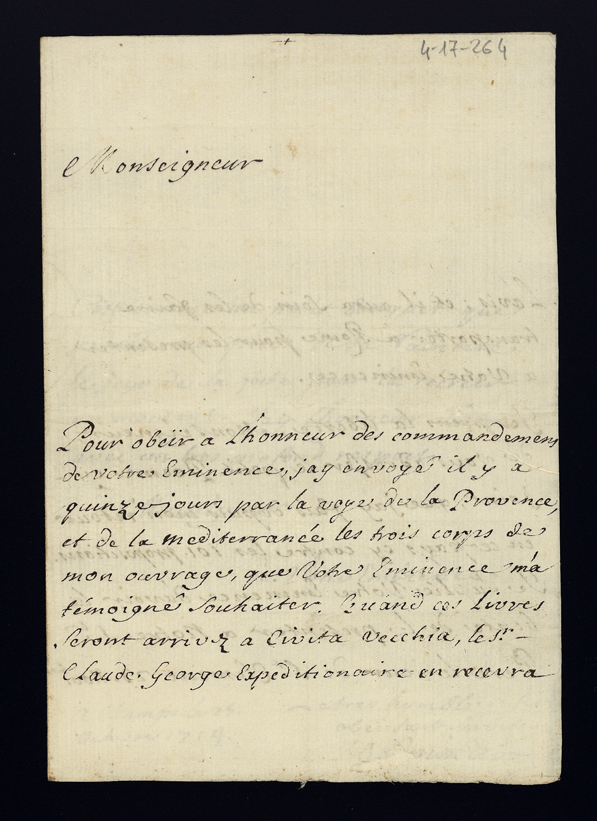 4-17-264
Monseigneur
Pour obeïr a L'honneur des commandemens
de votre Eminence, j'ay envoyé il y a
quinze jours par la voye de la Provence,
et de la mediterranée les trois corps de
mon ouvrage, que Votre Eminence m'a
témoigné souhaiter. Quand ces Livres
seront arrivez a Civita Vecchia, le Sr.
Claude George Expeditionaire en recevra